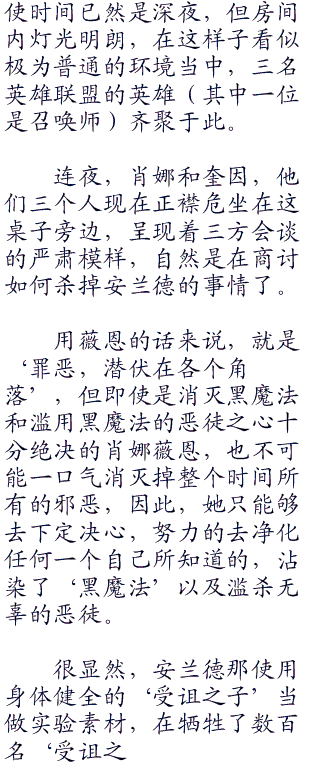 使时间已然是深夜，但房间
内灯光明朗，在这样子看似
极为普通的环境当中，三名
英雄联盟的英雄（其中一位
是召唤师）齐聚于此。
连夜，肖娜和奎因，他
们三个人现在正襟危坐在这
桌子旁边，呈现着三方会谈
的严肃模样，自然是在商讨
如何杀掉安兰德的事情了。
用薇恩的话来说，就是
‘罪恶，潜伏在各个角
落’，但即使是消灭黑魔法
和滥用黑魔法的恶徒之心十
分绝决的肖娜薇恩，也不可
能一口气消灭掉整个时间所
有的邪恶，因此，她只能够
去下定决心，努力的去净化
任何一个自己所知道的，沾
染了‘黑魔法’以及滥杀无
辜的恶徒。
很显然，安兰德那使用
身体健全的‘受诅之子’当
做实验素材，在牺牲了数百
名‘受诅之